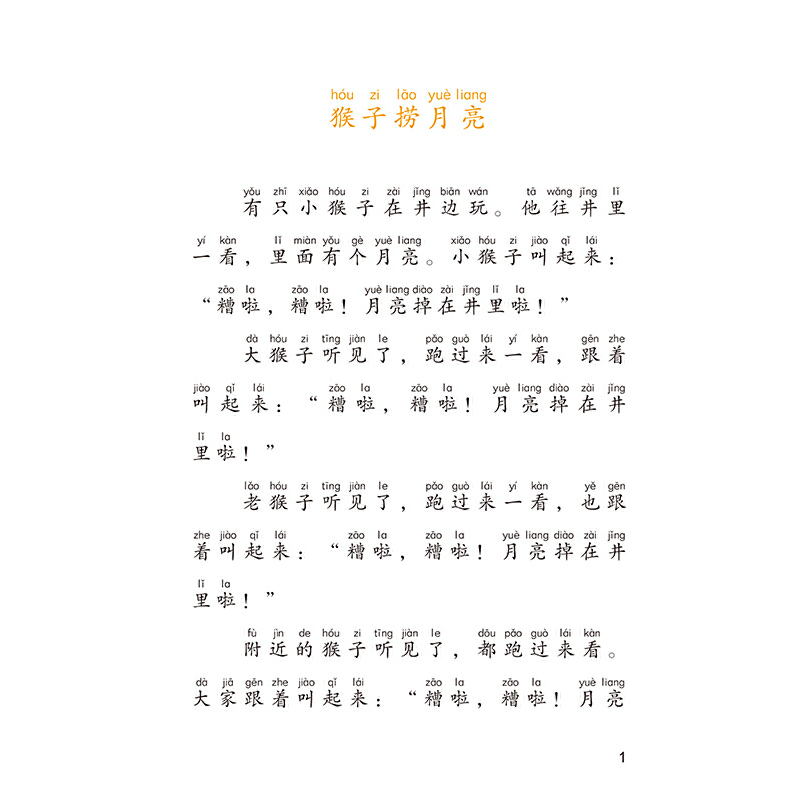 hóu zi lāo yuè liang
猴子捞月亮
yǒu zhī xiǎo hóu zi zài jǐng biān wán tā wǎng jǐng lǐ
有只小猴子在井边玩。他往井里
yí kàn lǐ miàn yǒu gè yuè liang xiǎo hóu zi jiào qǐ lái
一看，里面有个月亮。小猴子叫起来：
zāo la zāo la yuè liang diào zài jǐng lǐ la
“糟啦，糟啦！月亮掉在井里啦！”
dà hóu zi tīng jiàn le pǎo guò lái yí kàn gēn zhe
大猴子听见了，跑过来一看，跟着
jiào qǐ lái zāo la zāo la yuè liang diào zài jǐng
叫起来：“糟啦，糟啦！月亮掉在井
lǐ la
里啦！”
lǎo hóu zi tīng jiàn le pǎo guò lái yí kàn yě gēn
老猴子听见了，跑过来一看，也跟
zhe jiào qǐ lái zāo la zāo la yuè liang diào zài jǐng
着叫起来：“糟啦，糟啦！月亮掉在井
lǐ la
里啦！”
fù jìn de hóu zi tīng jiàn le dōu pǎo guò lái kàn
附近的猴子听见了，都跑过来看。
dà jiā gēn zhe jiào qǐ lái zāo la zāo la yuè liang
大家跟着叫起来：“糟啦，糟啦！月亮
1